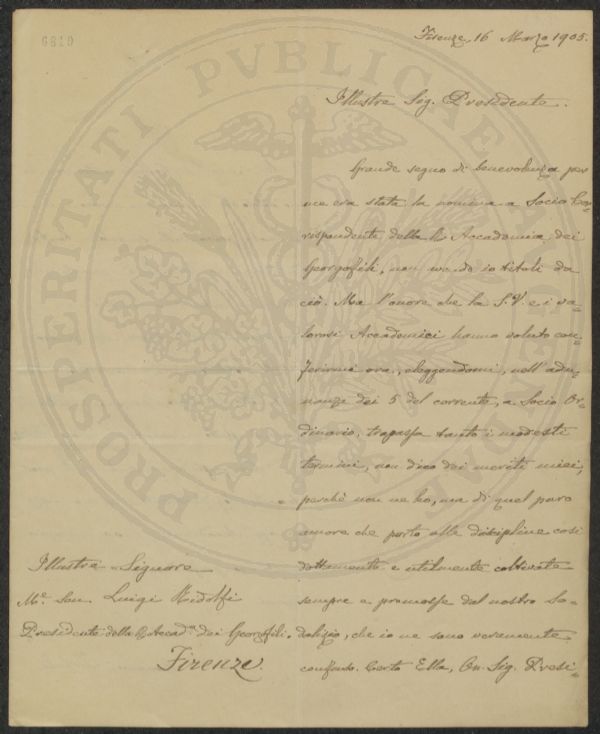 6810
Firenze, 16 Marzo 1905.
Illustre Sig. Presidente.
Grande segno di benevolenza per
me era stata la nomina a Socio Cor=
rispondente della R. Accademia dei
Georgofili, non avendo io titoli da
ciò. Ma l'onore che la S.V. e i va=
lorosi Accademici hanno voluto con=
ferirmi ora, eleggendomi, nell'adu=
nanza dei 5 del corrente, a Socio Or=
dinario, trapassa tanto i modesti
termini, non dico dei meriti miei,
perchè non ne ho, ma di quel poco
amore che porto alle discipline così
dottamente e utilmente coltivate
sempre e promosse dal nostro So=
dalizio, che io ne sono veramente
confuso. Certo Ella, On. Sig. Presi=
Illustre Signore
M.e Sen. Luigi Ridolfi
Presidente della R. Accad.a dei Georgofili.
Firenze
PROSPERITATI PVBLICAE